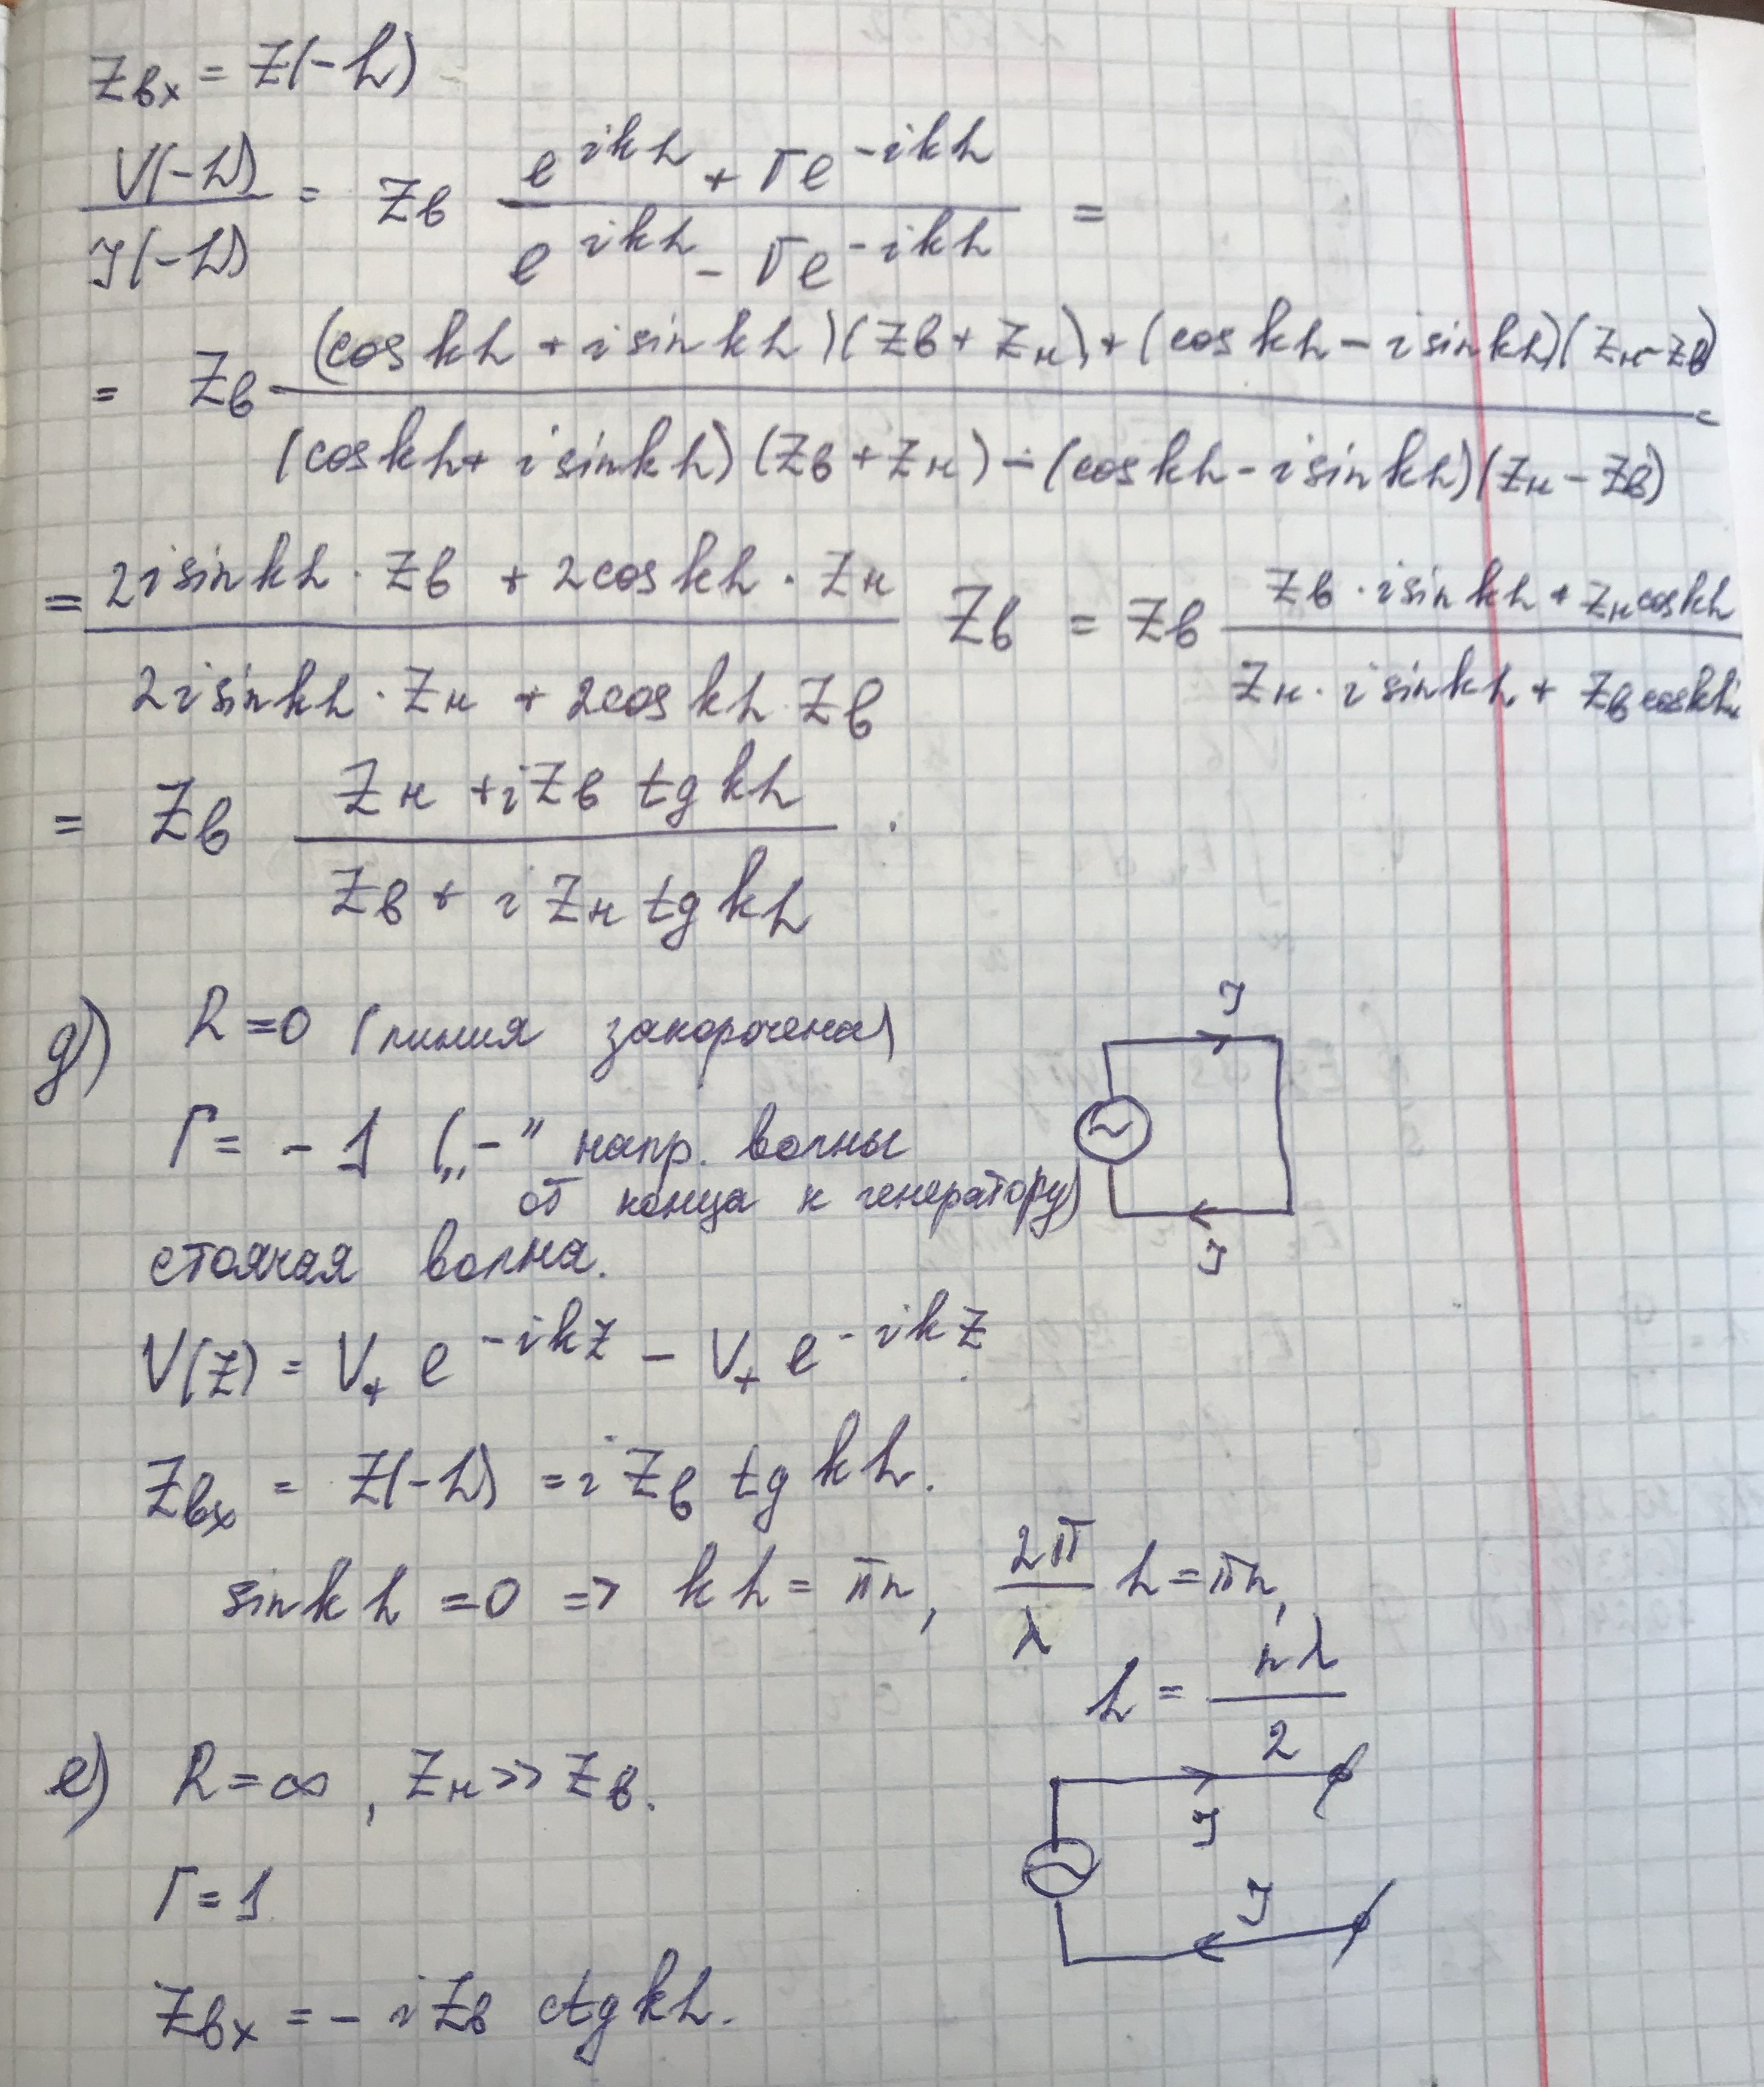 Zвх = Z(-h)
V(-h) / I(-h) = Zв (e^{ikh} + Гe^{-ikh}) / (e^{ikh} - Гe^{-ikh}) =
= Zв ((cos kh + i sin kh)(Zв + Zн) + (cos kh - i sin kh)(Zн - Zв)) / ((cos kh + i sin kh)(Zв + Zн) - (cos kh - i sin kh)(Zн - Zв)) =
= (2i sin kh · Zв + 2cos kh · Zн) / (2i sin kh · Zн + 2cos kh · Zв) Zв = Zв (Zв · i sin kh + Zн cos kh) / (Zн · i sin kh + Zв cos kh)
= Zв (Zн + i Zв tg kh) / (Zв + i Zн tg kh) .
д) R = 0 (линия закорочена)
I
Г = - 1 („-" напр. волны
от конца к генератору)
I
стоячая волна.
V(z) = V₊ e^{-ikz} - V₊ e^{-ikz}.
Zвх = Z(-h) = i Zв tg kh.
sin kh = 0 => kh = πn, 2π/λ h = πn,
h = nλ/2
е) R = ∞, Zн >> Zв.
I
Г = 1
I
Zвх = - i Zв ctg kh.